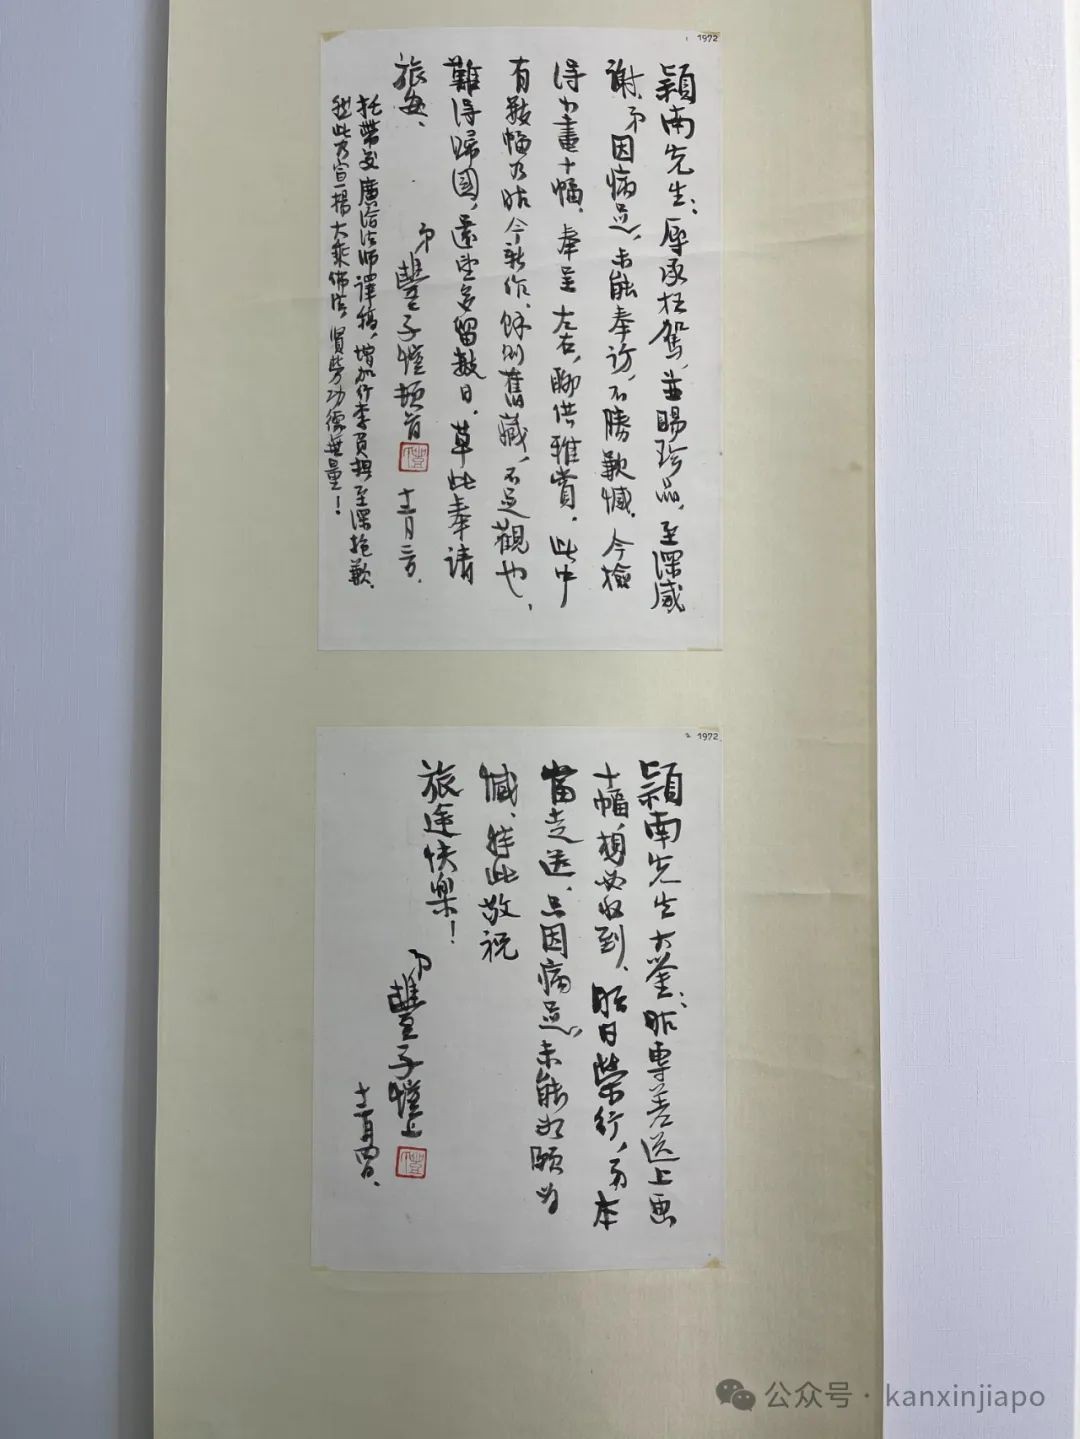 1972
穎南先生：辱承枉駕，並賜珍品，至深感
謝。弟因病足，未能奉訪，不勝歉憾。今檢
得書畫十幅，奉呈左右，聊供雅賞。此中
有數幅乃昨今新作，餘則舊藏，不足觀也。
難得歸國，還望多留數日。草此奉請
旅安。
弟豐子愷頓首
十二月三日。
托帶交廣洽法師譯稿，增加行李負担，至深抱歉。
然此乃宣揚大乘佛法，賢勞功德無量！
2 1972
穎南先生大鑒：昨專差送上畫
十幅，想必收到。明日榮行，弟本
當走送，只因病足，未能如願為
憾。特此敬祝
旅途快樂！
弟豐子愷上
十二月四日。
公众号 · kanxinjiapo